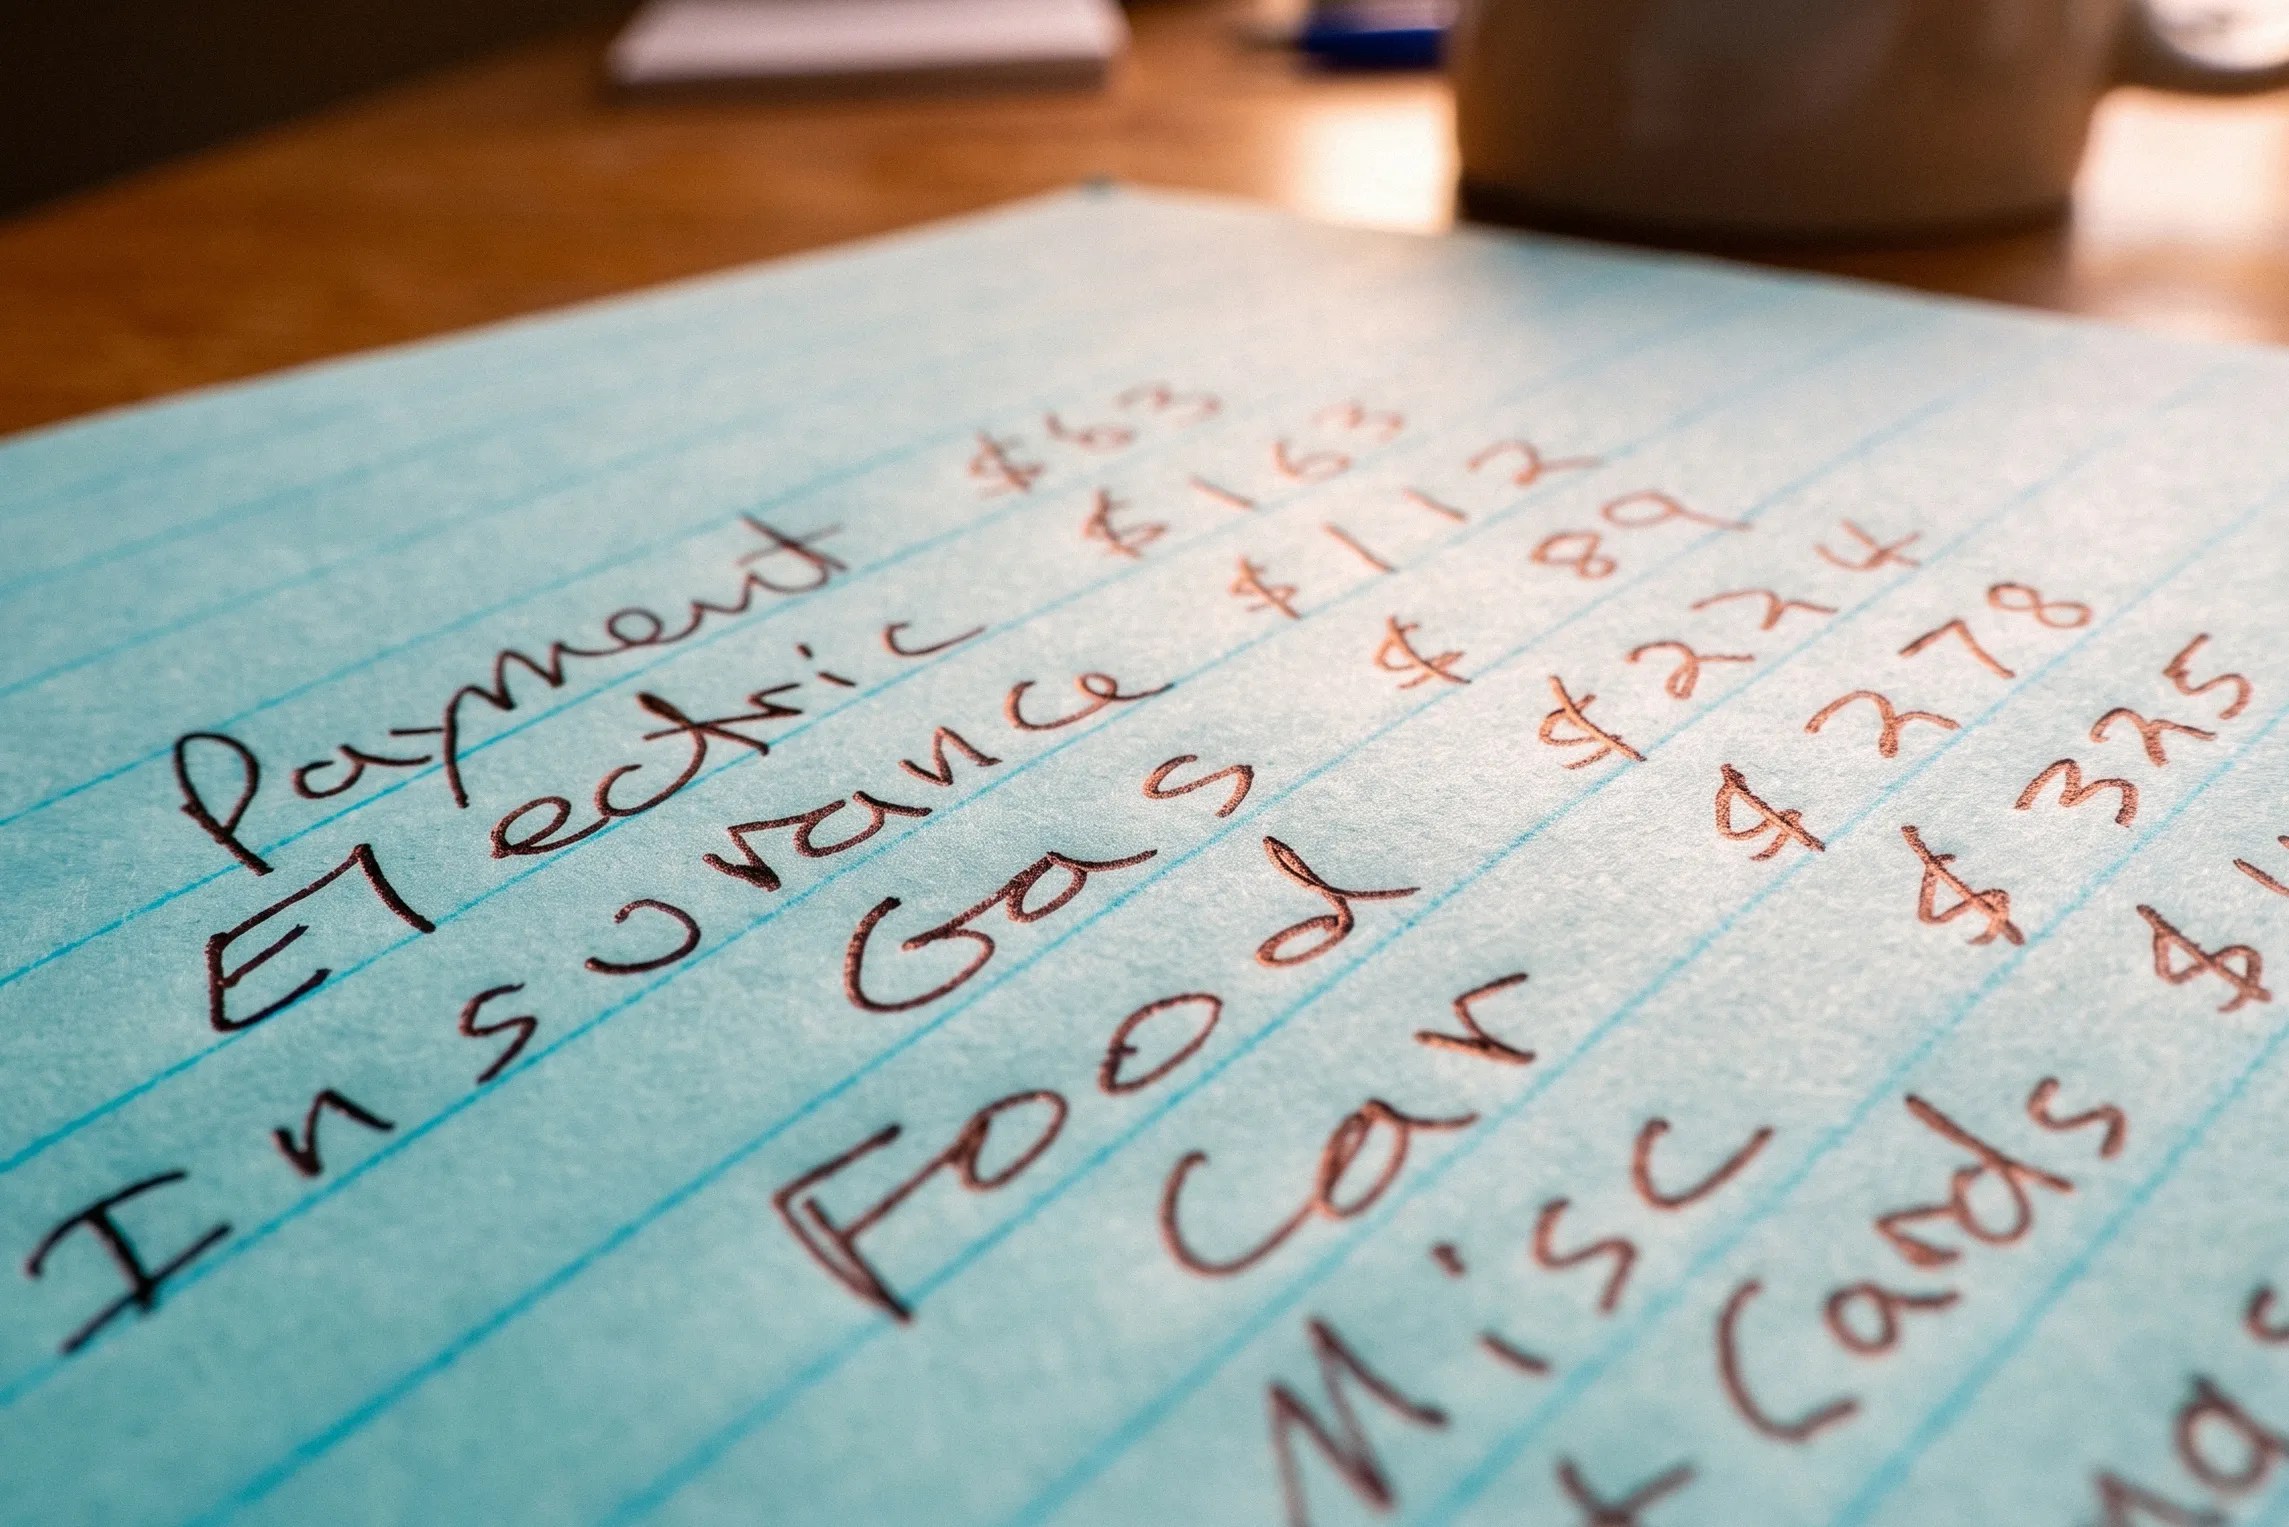 Payment $63
Electric $163
Insurance $112
Gas $89
Food $224
Car $278
Misc $325
t Cards $1